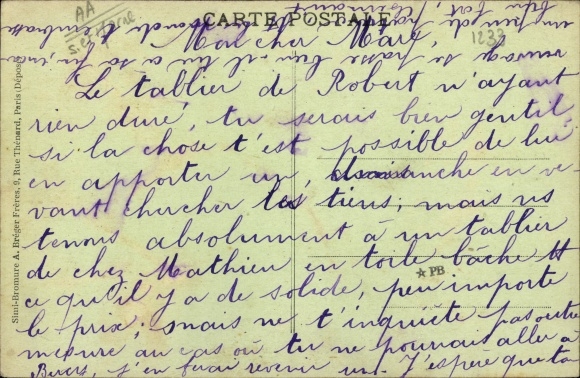 AA
S. et Marne
CARTE POSTALE
1233
Mon cher Marc,
Le tablier de Robert n'ayant
rien duré, tu serais bien gentil,
si la chose t'est possible de lui
en apporter un, dimanche en ve-
nant chercher les tiens; mais ns
tenons absolument à un tablier
de chez Mathieu en toile bâche tt
ce qu'il y a de solide, peu importe
le prix; mais ne t'inquiète pas outre
mesure au cas où tu ne pourrais aller à
Bercy, j'en ferai revenir un. J'espère que ta
Simili-Bromure A. Breger Frères, 9, Rue Thénard, Paris (Déposé)
PB